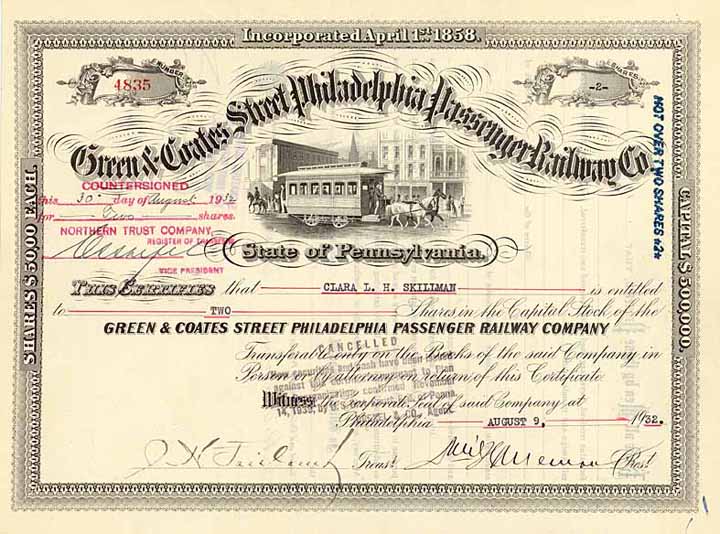 Incorporated April 1st 1858.
NUMBER
4835
SHARES
-2-
Green & Coates Street Philadelphia Passenger Railway Co.
NOT OVER TWO SHARES
COUNTERSIGNED
this 30 day of August 1932
for Two shares.
NORTHERN TRUST COMPANY,
REGISTER OF TRANSFERS
VICE PRESIDENT
State of Pennsylvania.
SHARES $50.00 EACH.
CAPITAL $500,000.
This Certifies that CLARA L. H. SKILLMAN is entitled
to TWO Shares in the Capital Stock of the
GREEN & COATES STREET PHILADELPHIA PASSENGER RAILWAY COMPANY
CANCELLED
Transferable only on the Books of the said Company in
Person or by attorney on return of this Certificate
Witness the corporate Seal of said Company at
Philadelphia AUGUST 9, 1932.
Treast. Prest.